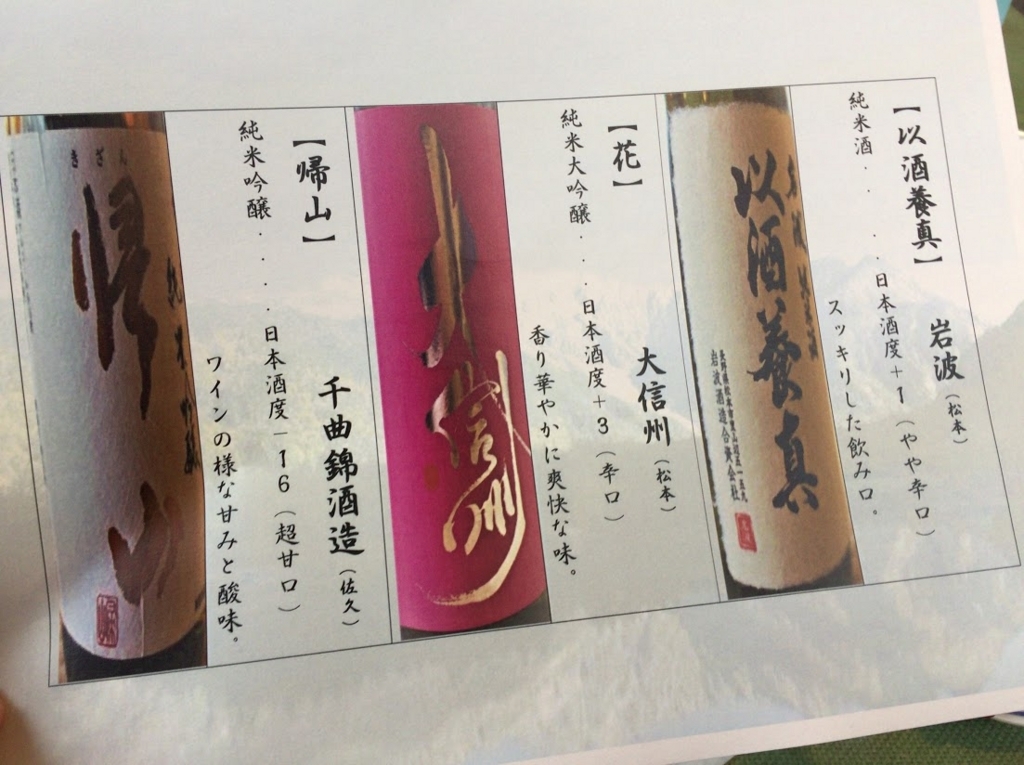 【以酒養真】
岩波（松本）
純米酒・・・・日本酒度＋1（やや辛口）
スッキリした飲み口。
以酒養真
岩波酒造合資会社
【花】
大信州（松本）
純米大吟醸・・・日本酒度＋3（辛口）
香り華やかに爽快な味。
大信州
【帰山】
千曲錦酒造（佐久）
純米吟醸・・・・日本酒度－16（超甘口）
ワインの様な甘みと酸味。
きざん
帰山
純米吟醸